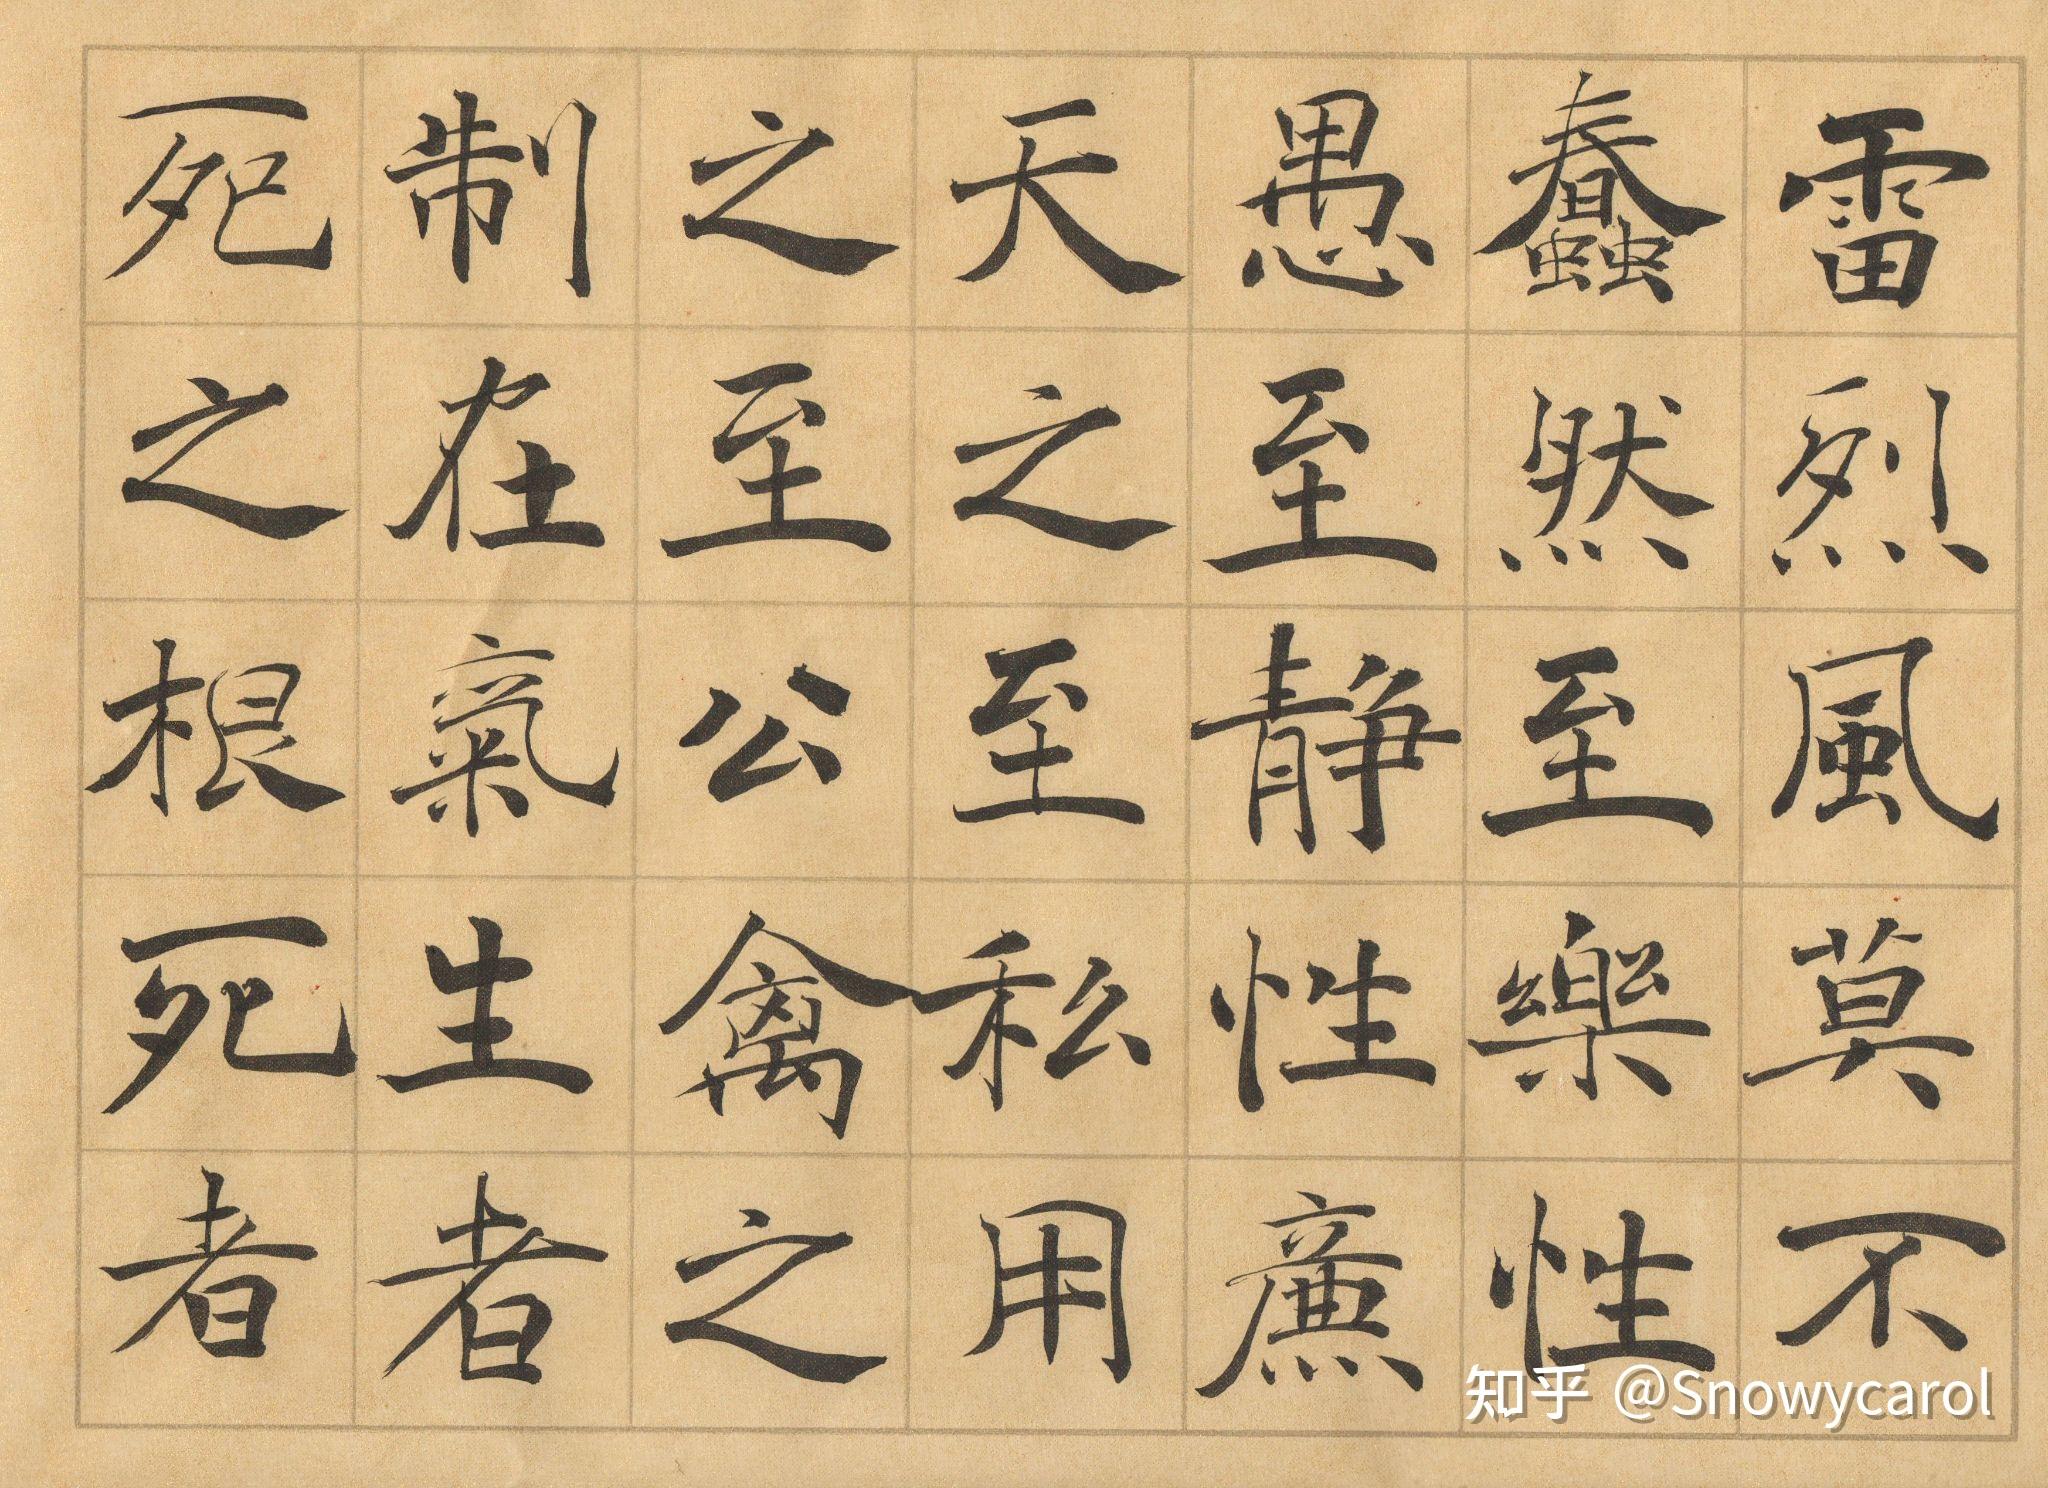 雷烈風莫不
蠢然至樂性
愚至静性廉
天之至私用
之至公禽之
制在氣生者
死之根死者
知乎 @Snowycarol